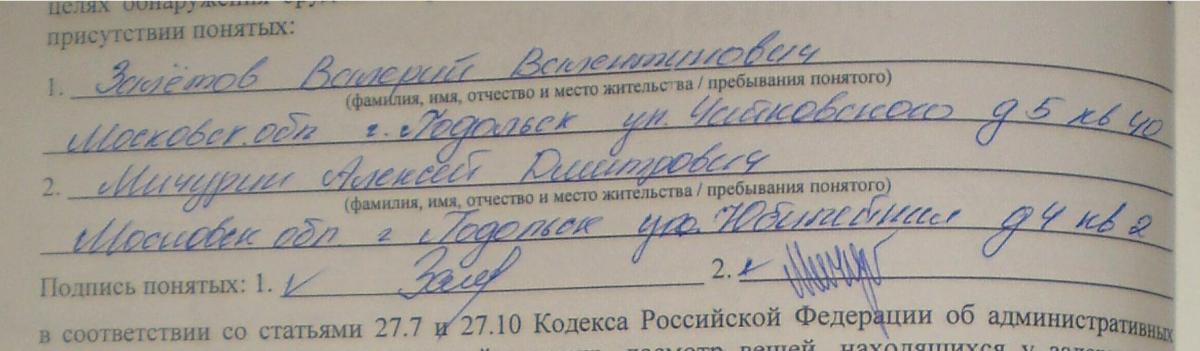 целях обнаружения
присутствии понятых:
1. Залётов Валерий Валентинович
(фамилия, имя, отчество и место жительства / пребывания понятого)
Московск. обл г. Подольск ул. Чайковского д 5 кв 40
2. Мичурин Алексей Дмитрович
(фамилия, имя, отчество и место жительства / пребывания понятого)
Московск обл. г Подольск ул. Юбилейная д 4 кв 2
Подпись понятых: 1. Залет 2. Мичур
в соответствии со статьями 27.7 и 27.10 Кодекса Российской Федерации об административных
досмотр вещей, находящихся у